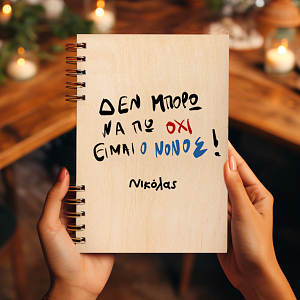 ΔΕΝ ΜΠΟΡΩ
ΝΑ ΠΩ ΟΧΙ
ΕΙΜΑΙ Ο ΝΟΝΟΣ!
Νικόλας